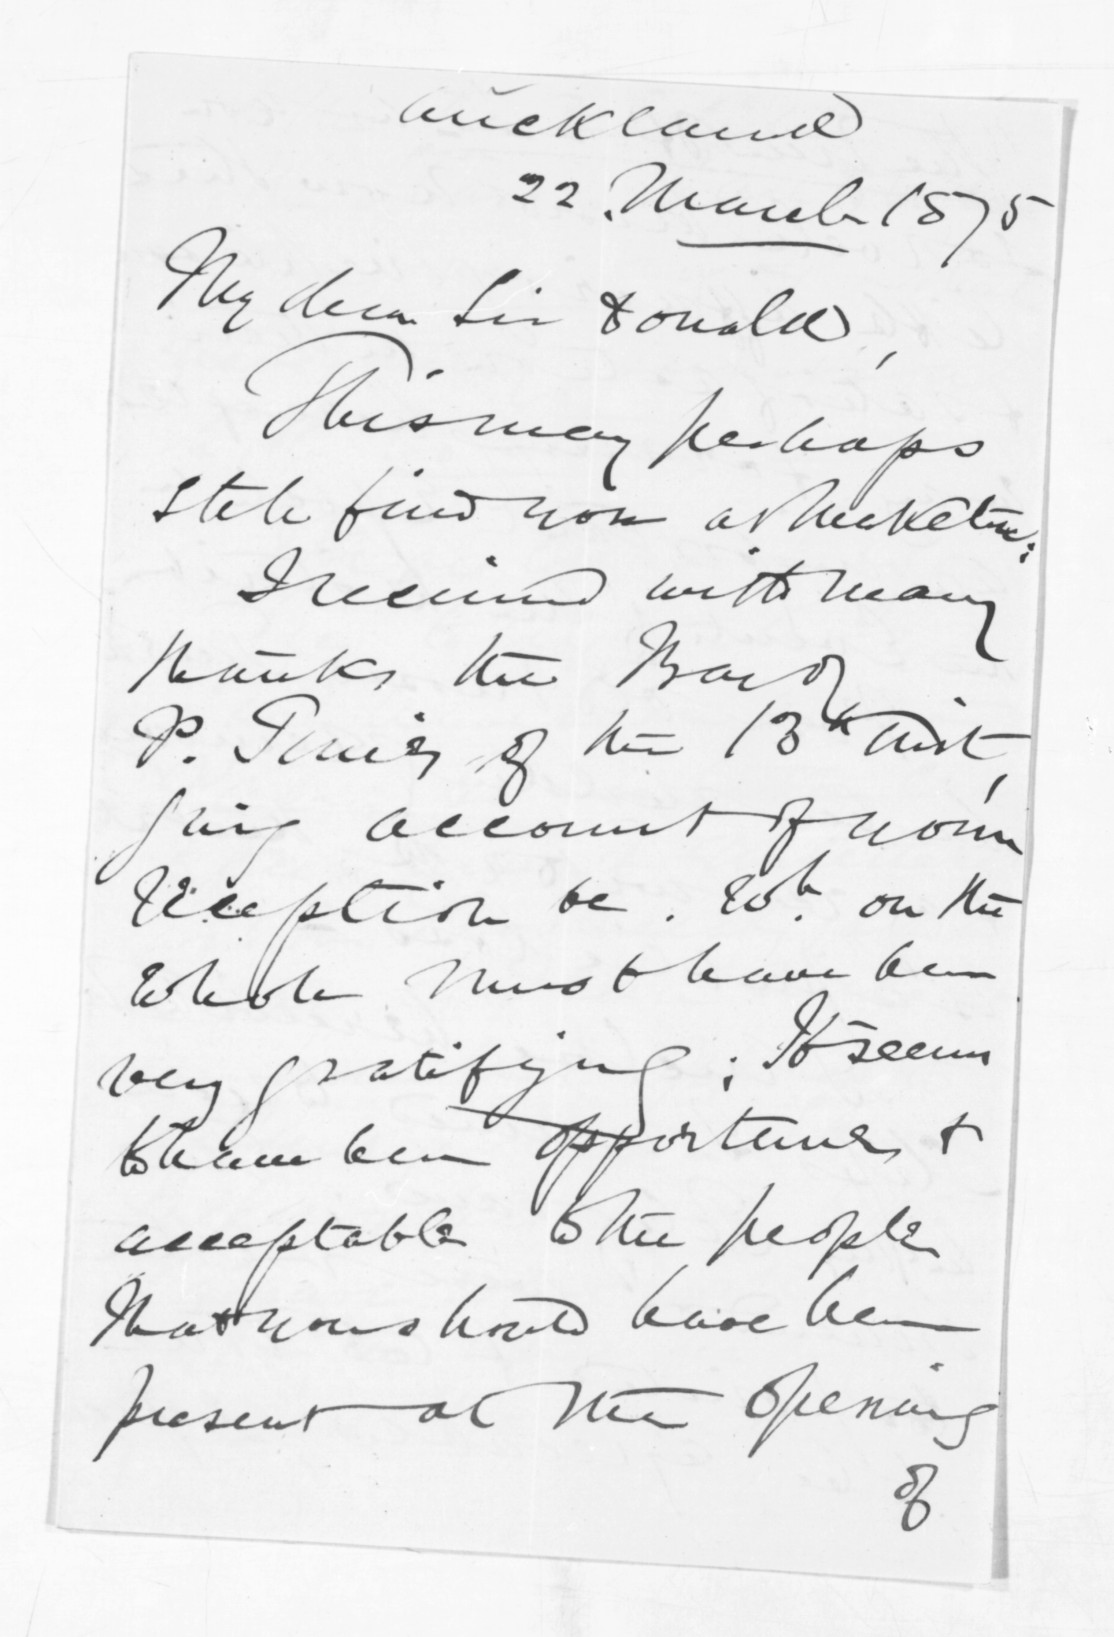 Auckland
22. March 1875
My dear Sir Donald,
This may perhaps
still find you at Maketu:
I received with many
thanks the Bay of
P. Times of the 13th inst,
giving account of your
reception &c. wh. on the
whole must have been
very gratifying; It seems
to have been opportune, &
acceptable to the people
that you should have been
present at the opening
of